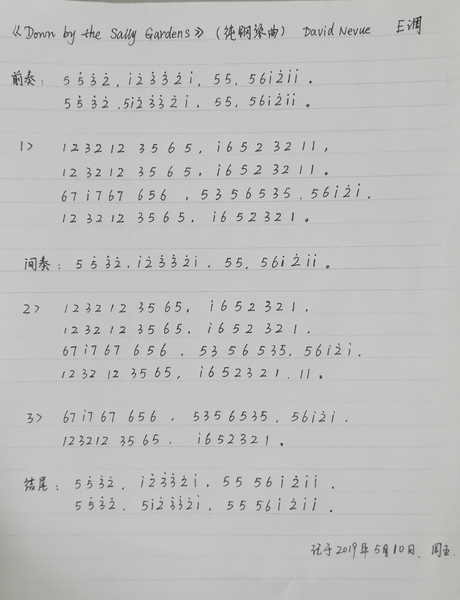 《Down by the Sally Gardens》(纯钢琴曲) David Nevue E调
前奏: 5 5̇ 3̇ 2̇, i 2̇ 3̇ 3̇ 2̇ i, 5 5, 5 6 i 2̇ i i。
5 5̇ 3̇ 2̇, 5 i 2̇ 3̇ 3̇ 2̇ i, 5 5, 5 6 i 2̇ i i。
1> 1 2 3 2 1 2 3 5 6 5, i 6 5 2 3 2 1 1,
1 2 3 2 1 2 3 5 6 5, i 6 5 2 3 2 1 1。
6 7 i 7 6 7 6 5 6, 5 3 5 6 5 3 5, 5 6 i 2̇ i,
1 2 3 2 1 2 3 5 6 5, i 6 5 2 3 2 1。
间奏: 5 5̇ 3̇ 2̇, i 2̇ 3̇ 3̇ 2̇ i, 5 5, 5 6 i 2̇ i i。
2> 1 2 3 2 1 2 3 5 6 5, i 6 5 2 3 2 1,
1 2 3 2 1 2 3 5 6 5, i 6 5 2 3 2 1,
6 7 i 7 6 7 6 5 6, 5 3 5 6 5 3 5, 5 6 i 2̇ i,
1 2 3 2 1 2 3 5 6 5, i 6 5 2 3 2 1, 1 1。
3> 6 7 i 7 6 7 6 5 6, 5 3 5 6 5 3 5, 5 6 i 2̇ i,
1 2 3 2 1 2 3 5 6 5, i 6 5 2 3 2 1。
结尾: 5 5̇ 3̇ 2̇, i 2̇ 3̇ 3̇ 2̇ i, 5 5 5 6 i 2̇ i i。
5 5̇ 3̇ 2̇, 5 i 2̇ 3̇ 3̇ 2̇ i, 5 5 5 6 i 2̇ i i。
记于2019年5月10日. 周